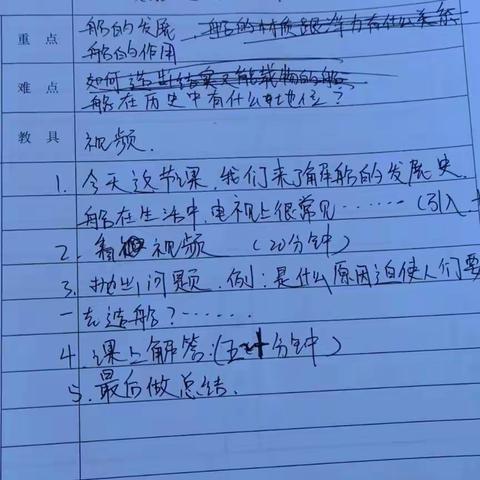 重 点 船的发展、船的材质跟浮力有什么关系
船的作用
难 点 如何造出结实又能载物的船
船在历史中有什么地位？
教 具 视频.
1. 今天这节课,我们来了解船的发展史.
船在生活中,电视上很常见……(引入.
2. 看视频 (20分钟)
3. 抛出问题.例:是什么原因迫使人们要
去造船？……
4. 课上解答:(五十分钟)
5. 最后做总结.